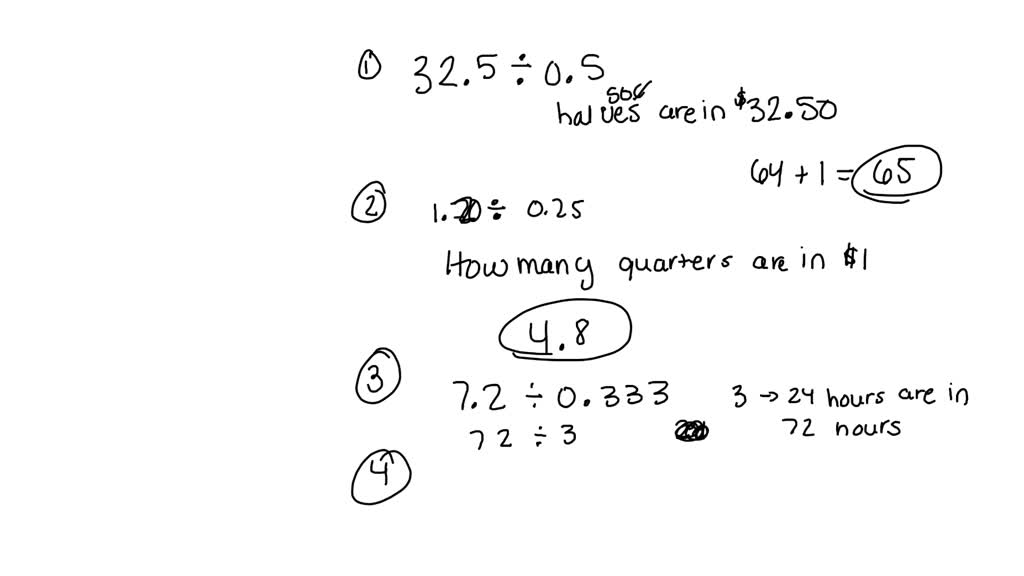 ① 32.5 ÷ 0.5
50¢
halves are in $32.50
64 + 1 = 65
② 1.20 ÷ 0.25
How many quarters are in $1
4.8
③ 7.2 ÷ 0.333 3 → 24 hours are in
72 ÷ 3 72 hours
④